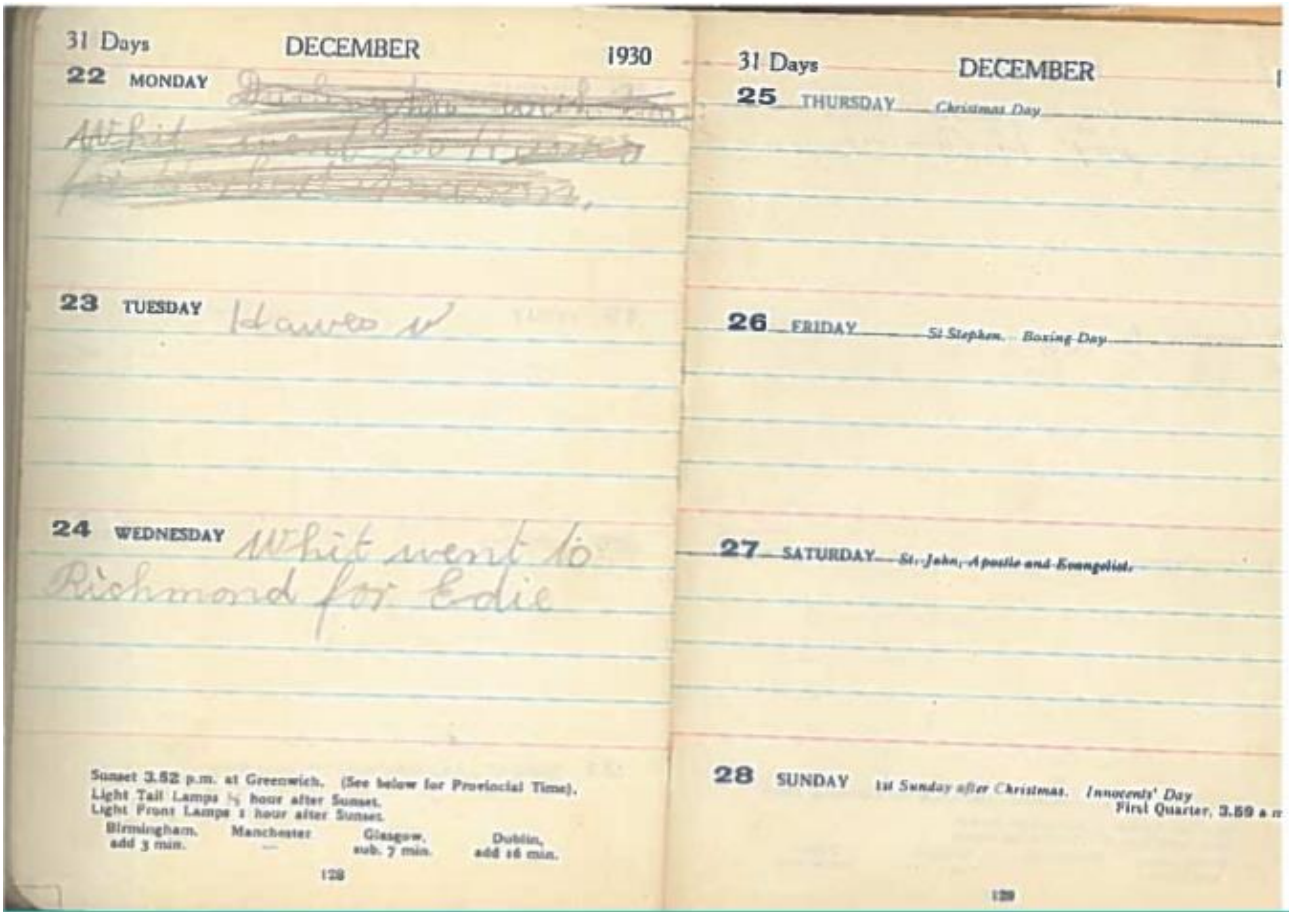 31 Days DECEMBER 1930
22 MONDAY Darlington with
Whit went to Hawes
for Herbert
23 TUESDAY Hawes
24 WEDNESDAY Whit went to
Richmond for Edie
Sunset 3.52 p.m. at Greenwich. (See below for Provincial Time).
Light Tail Lamps ½ hour after Sunset.
Light Front Lamps 1 hour after Sunset.
Birmingham, Manchester Glasgow, Dublin,
add 3 min. — sub. 7 min. add 16 min.
128
31 Days DECEMBER
25 THURSDAY Christmas Day
26 FRIDAY St Stephen. Boxing Day
27 SATURDAY St. John, Apostle and Evangelist.
28 SUNDAY 1st Sunday after Christmas. Innocents' Day
First Quarter, 3.59 a.m
129